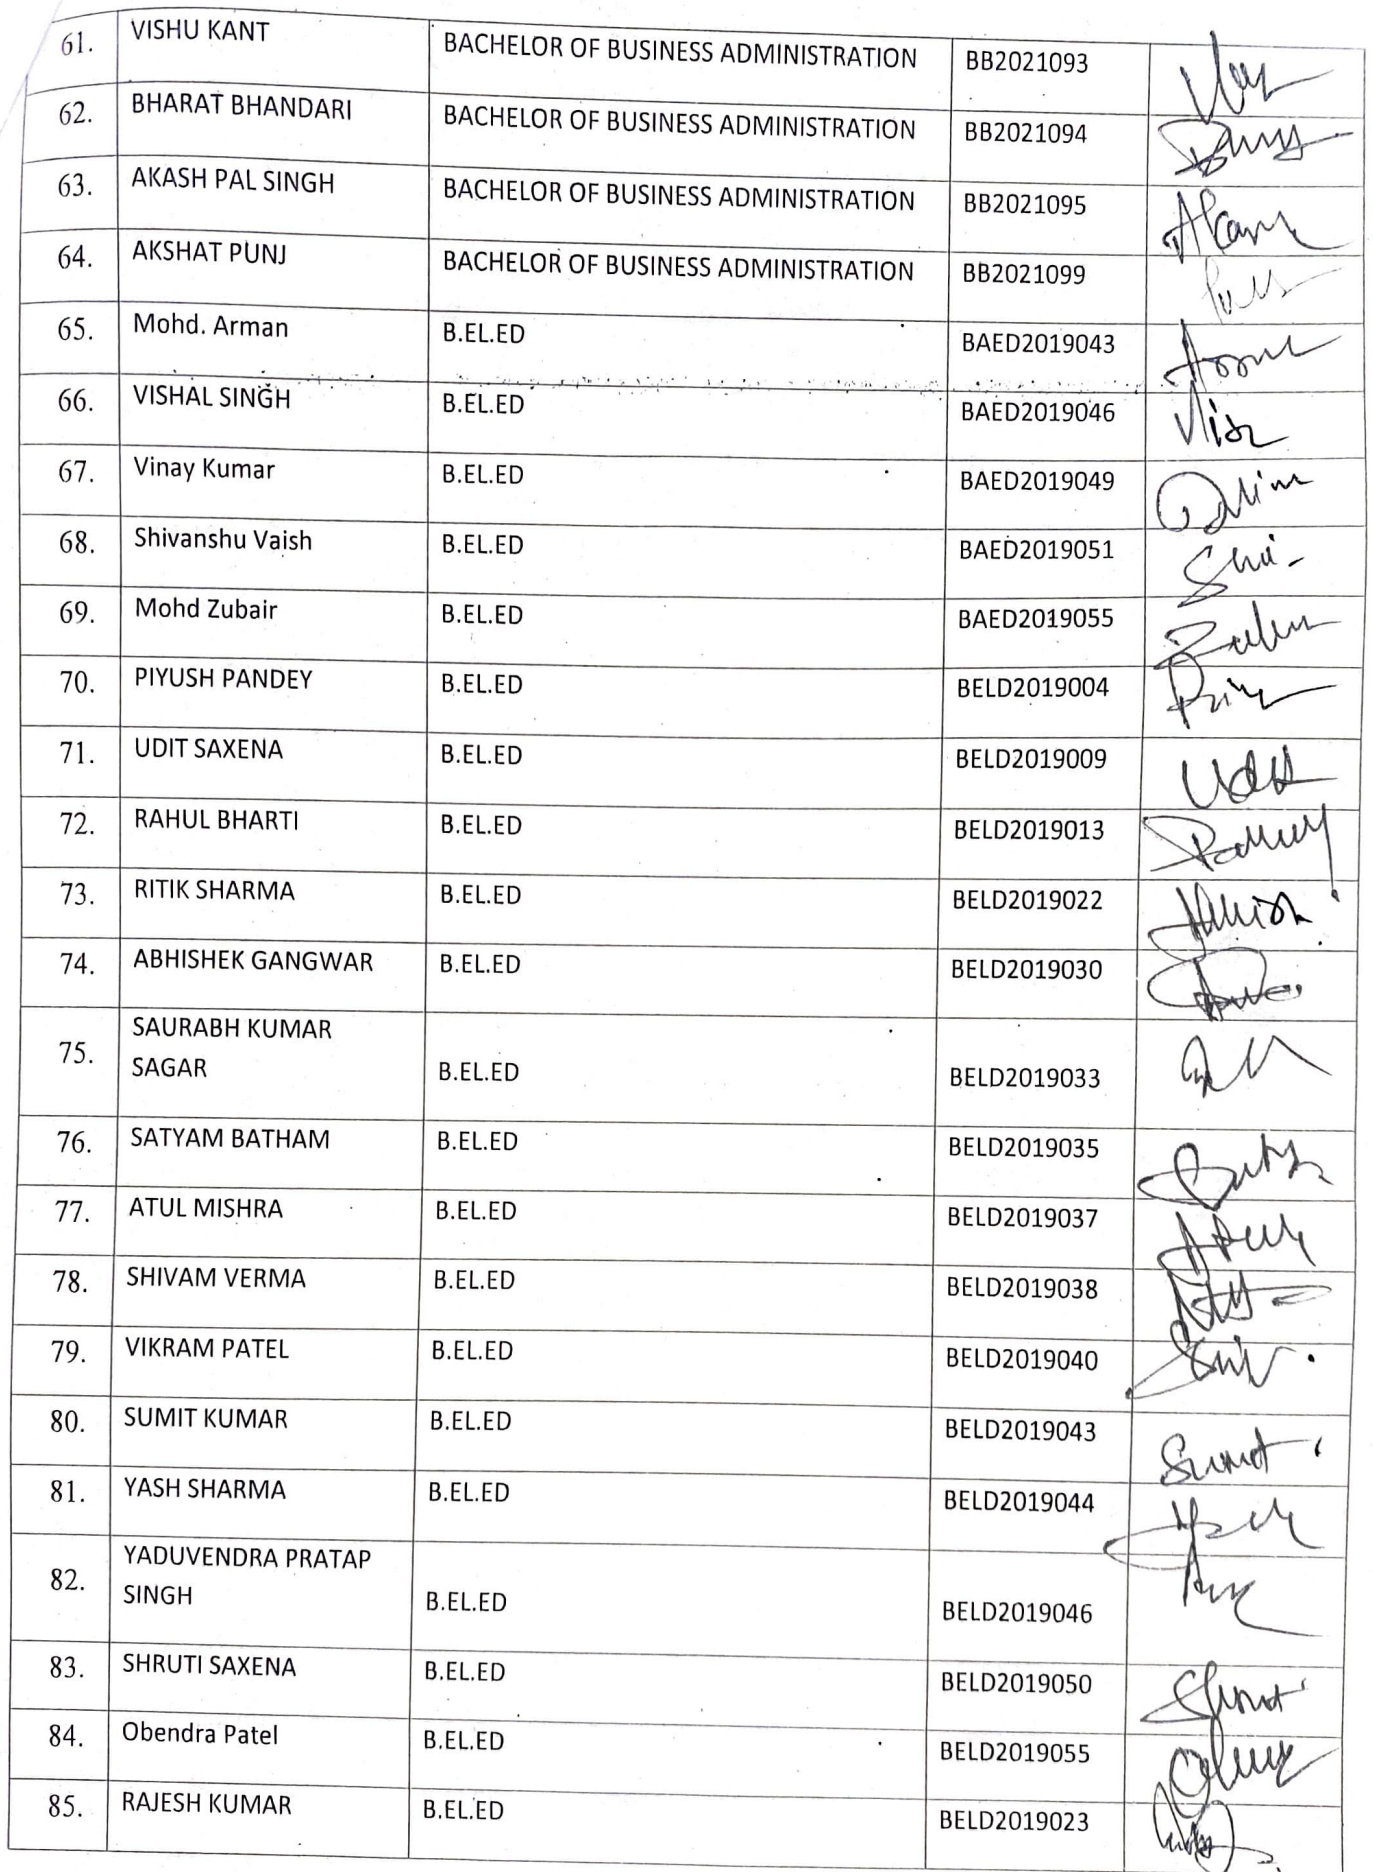 61. VISHU KANT BACHELOR OF BUSINESS ADMINISTRATION BB2021093
62. BHARAT BHANDARI BACHELOR OF BUSINESS ADMINISTRATION BB2021094
63. AKASH PAL SINGH BACHELOR OF BUSINESS ADMINISTRATION BB2021095
64. AKSHAT PUNJ BACHELOR OF BUSINESS ADMINISTRATION BB2021099
65. Mohd. Arman B.EL.ED BAED2019043
66. VISHAL SINGH B.EL.ED BAED2019046
67. Vinay Kumar B.EL.ED BAED2019049
68. Shivanshu Vaish B.EL.ED BAED2019051
69. Mohd Zubair B.EL.ED BAED2019055
70. PIYUSH PANDEY B.EL.ED BELD2019004
71. UDIT SAXENA B.EL.ED BELD2019009
72. RAHUL BHARTI B.EL.ED BELD2019013
73. RITIK SHARMA B.EL.ED BELD2019022
74. ABHISHEK GANGWAR B.EL.ED BELD2019030
75. SAURABH KUMAR
SAGAR B.EL.ED BELD2019033
76. SATYAM BATHAM B.EL.ED BELD2019035
77. ATUL MISHRA B.EL.ED BELD2019037
78. SHIVAM VERMA B.EL.ED BELD2019038
79. VIKRAM PATEL B.EL.ED BELD2019040
80. SUMIT KUMAR B.EL.ED BELD2019043 Sumit
81. YASH SHARMA B.EL.ED BELD2019044
82. YADUVENDRA PRATAP
SINGH B.EL.ED BELD2019046
83. SHRUTI SAXENA B.EL.ED BELD2019050
84. Obendra Patel B.EL.ED BELD2019055
85. RAJESH KUMAR B.EL.ED BELD2019023